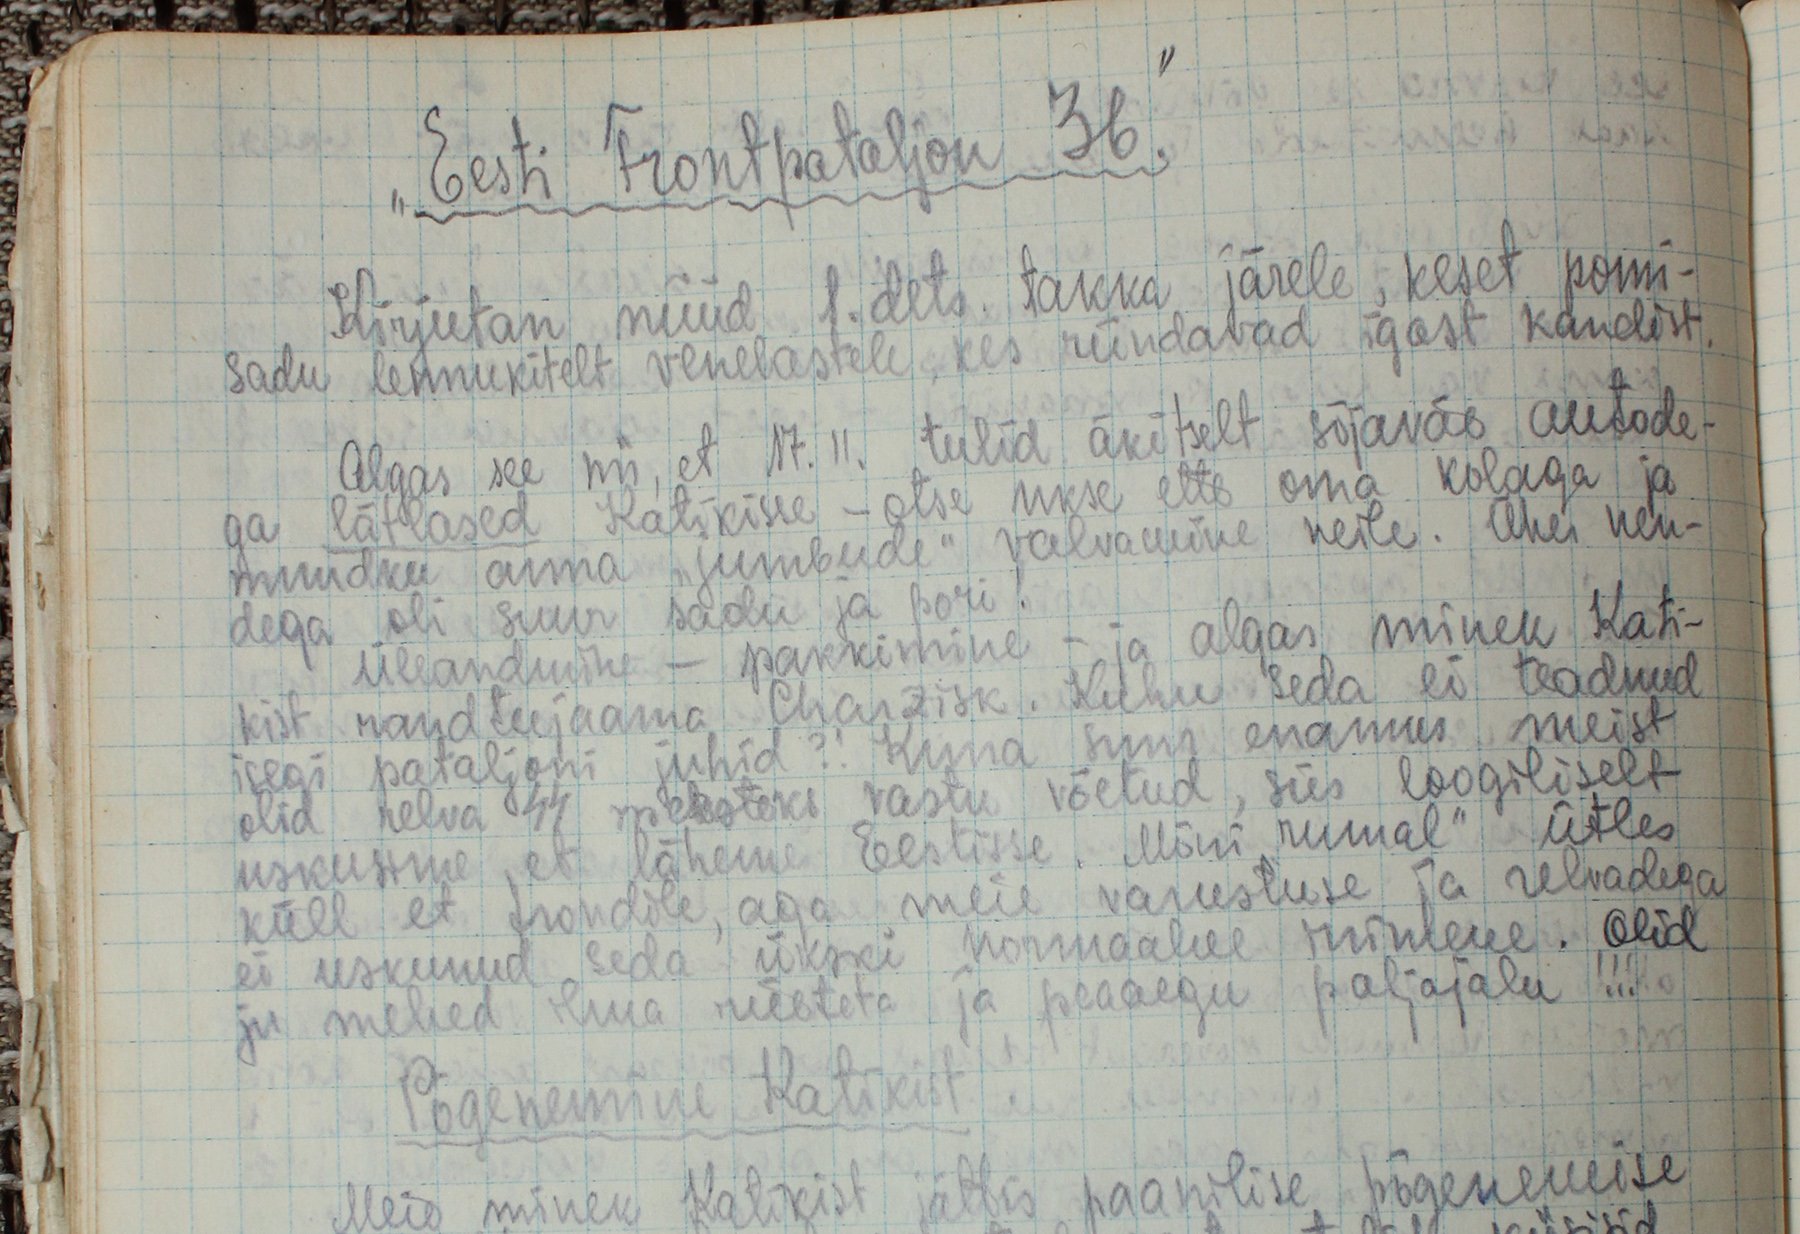 „Eesti Frontpataljon 36."
Kirjutan nüüd 1. dets. takka järele, keset pomi-
sadu lennukitelt venelastele, kes ründavad igast kandist.
Algas see nii, et 17. II. tulid äkitselt sõjaväe autode-
ga lätlased Katikisse – otse ukse ette oma kolaga ja
muudku anna „jumbude" valvamine neile. Ühes nen-
dega oli suur sadu ja pori!
Üleandmine – pakkimine – ja algas minek Kati-
kist raudteejaama Charzisk. Kuhu seda ei teadnud
isegi pataljoni juhid?! Kuna suur enamus meist
olid relva SS meesteks vastu võetud, siis loogiliselt
uskusime, et läheme Eestisse. Mõni „rumal" ütles
küll et frondile, aga meie varustuse ja relvadega
ei uskunud seda ükski normaalne inimene. Olid
ju mehed ilma riieteta ja peaaegu paljajalu!!!
Põgenemine Katikist.
Meie minek Katikist jättis paanilise põgenemise